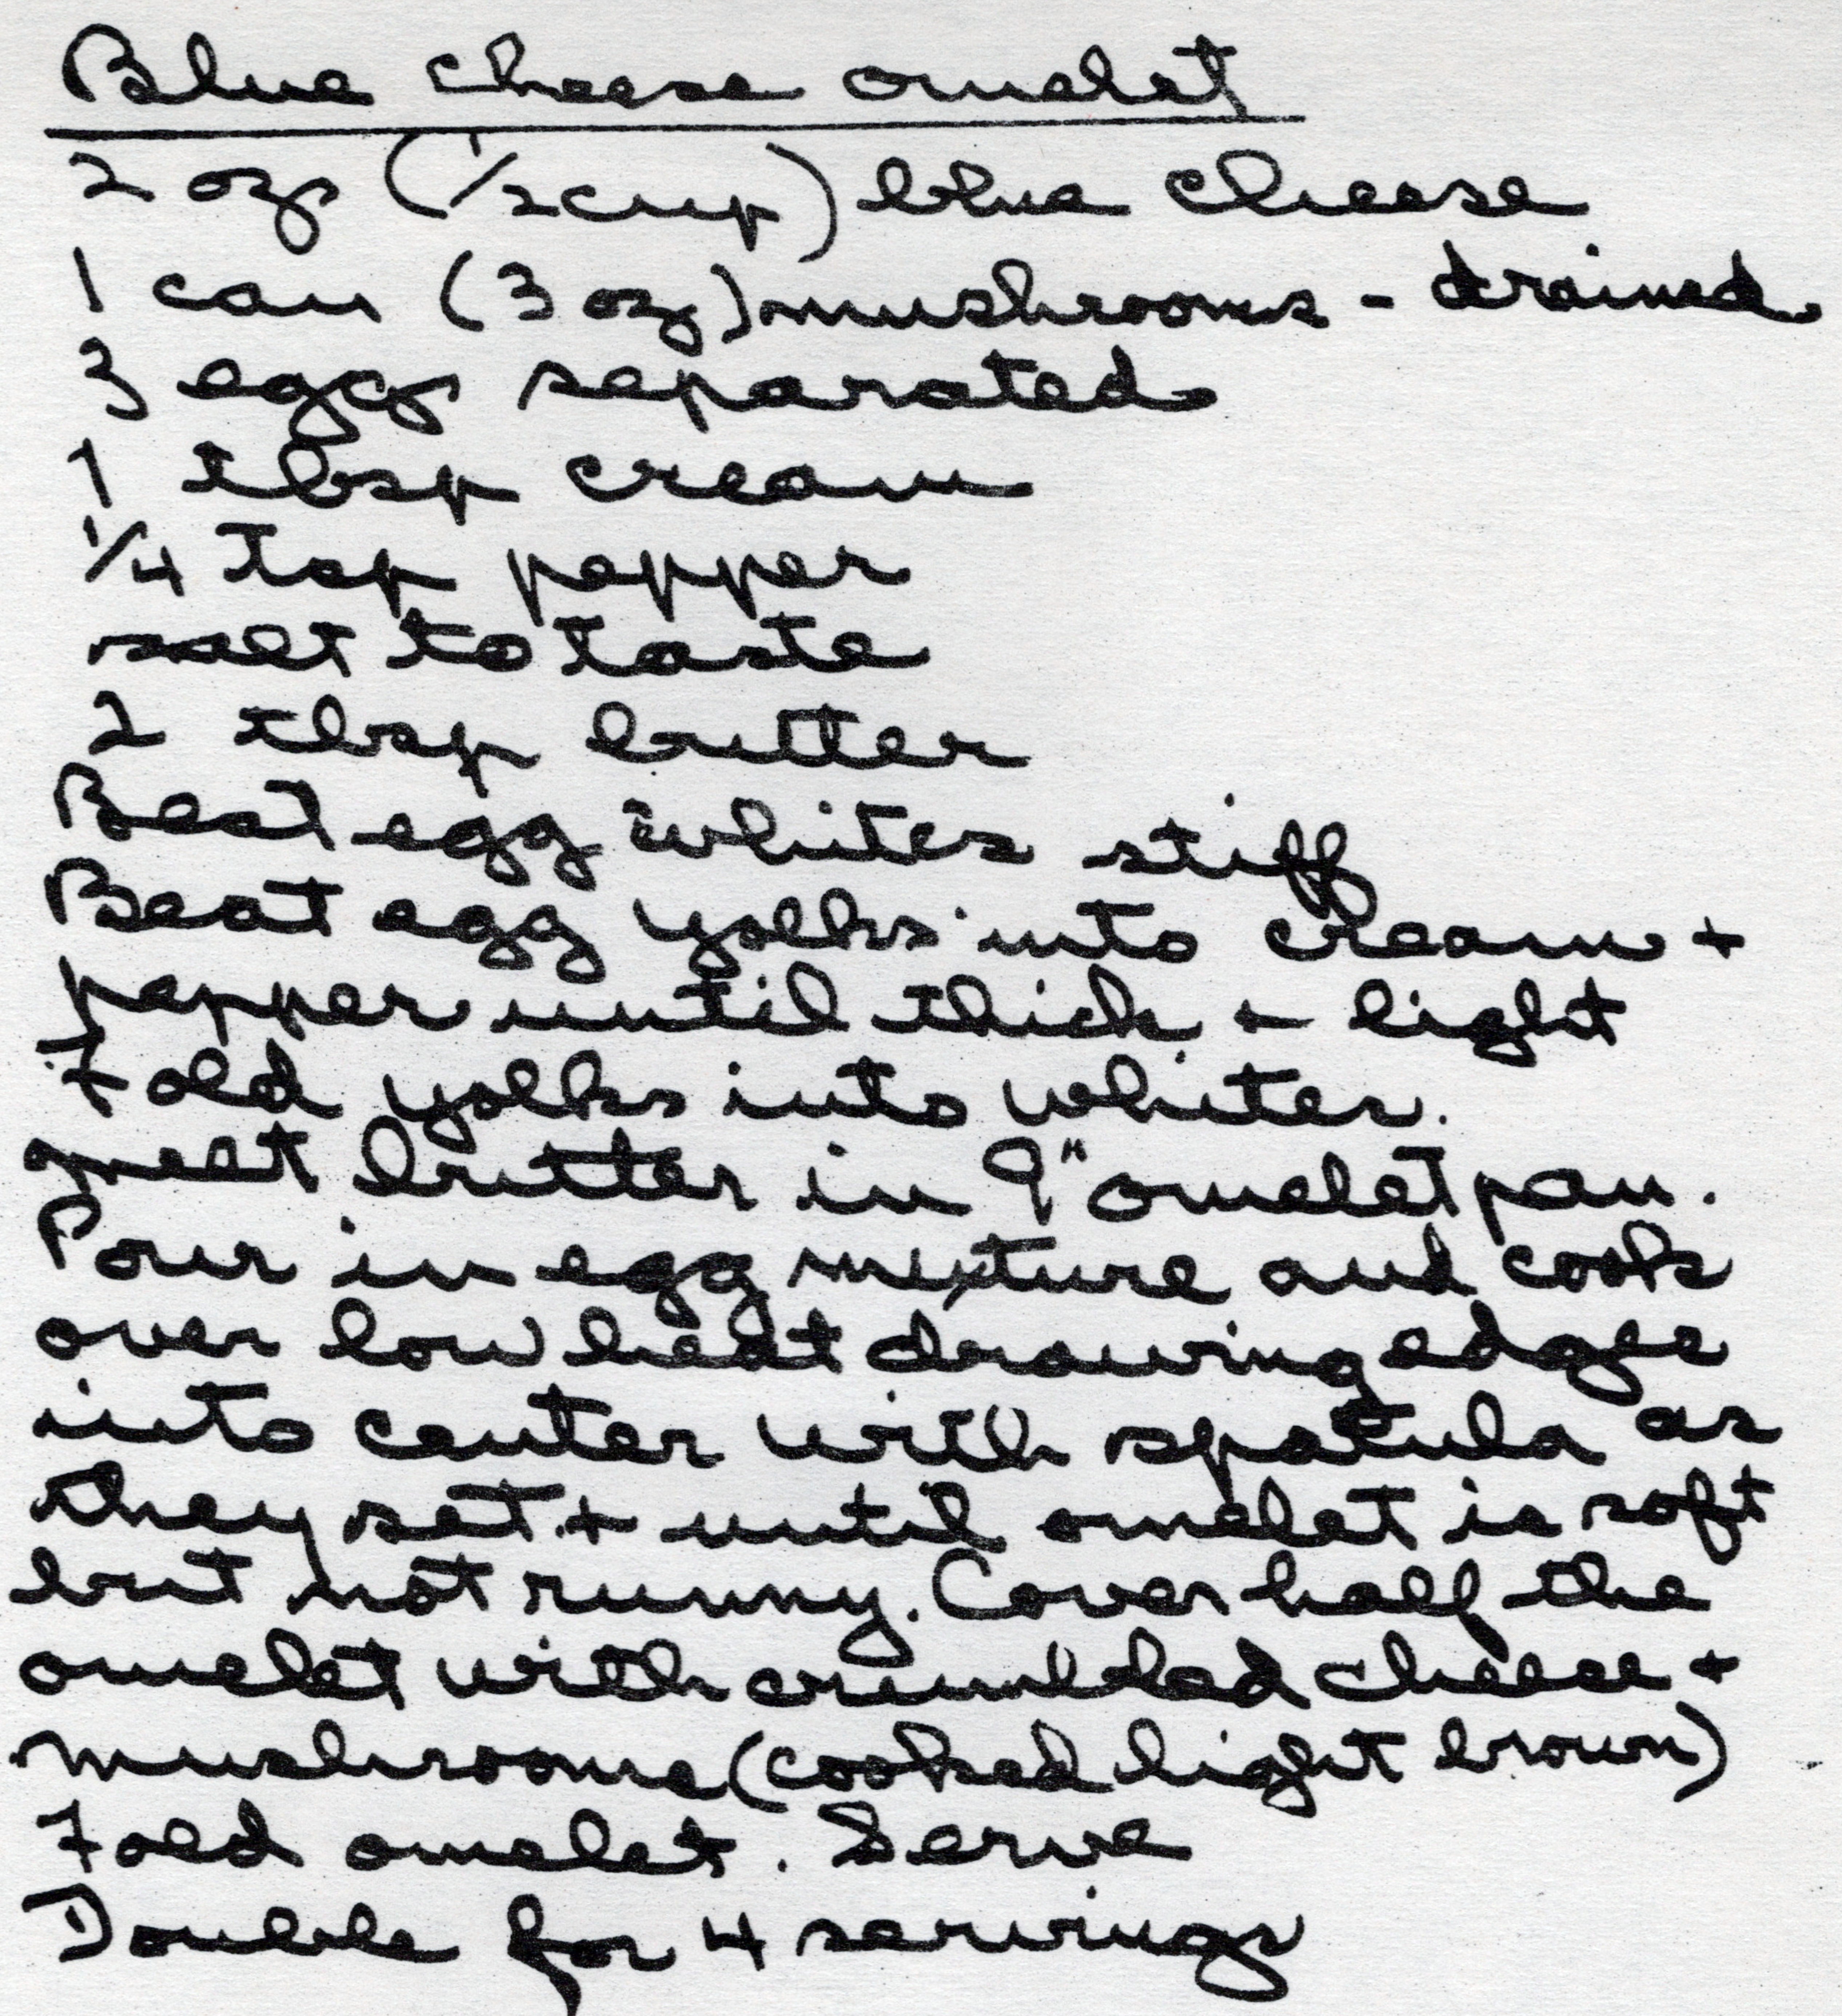 Blue cheese omelet
2 ozs (1/2 cup) blue cheese
1 can (3 oz) mushrooms - drained
3 eggs separated
1 tbsp cream
1/4 Tsp pepper
salt to taste
2 tbsp butter
Beat egg whites stiff
Beat egg yolks into cream +
pepper until thick + light
Fold yolks into whites.
melt butter in 9" omelet pan.
Pour in egg mixture and cook
over low heat drawing edges
into center with spatula as
they set + until omelet is soft
but not runny. Cover half the
omelet with crumbled cheese +
mushrooms (cooked light brown)
Fold omelet. Serve
Double for 4 servings